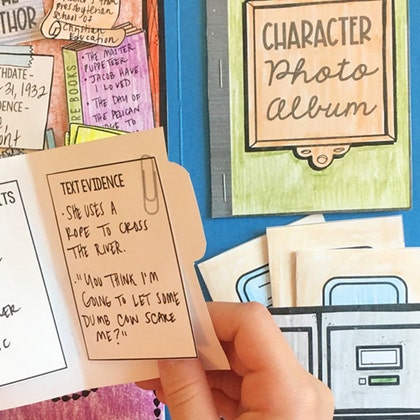 THOR
presbyterian
school of
Christian
Education
THDATE-
31, 1932
DENCE-
• THE MASTER
PUPPETEER
• JACOB HAVE
I LOVED
• THE DAY OF
THE PELICAN
RE BOOKS
CHARACTER
Photo
Album
ITS
TEXT EVIDENCE
• SHE USES A
ROPE TO CROSS
THE RIVER.
• "YOU THINK I'M
GOING TO LET SOME
DUMB COW SCARE
ME?"